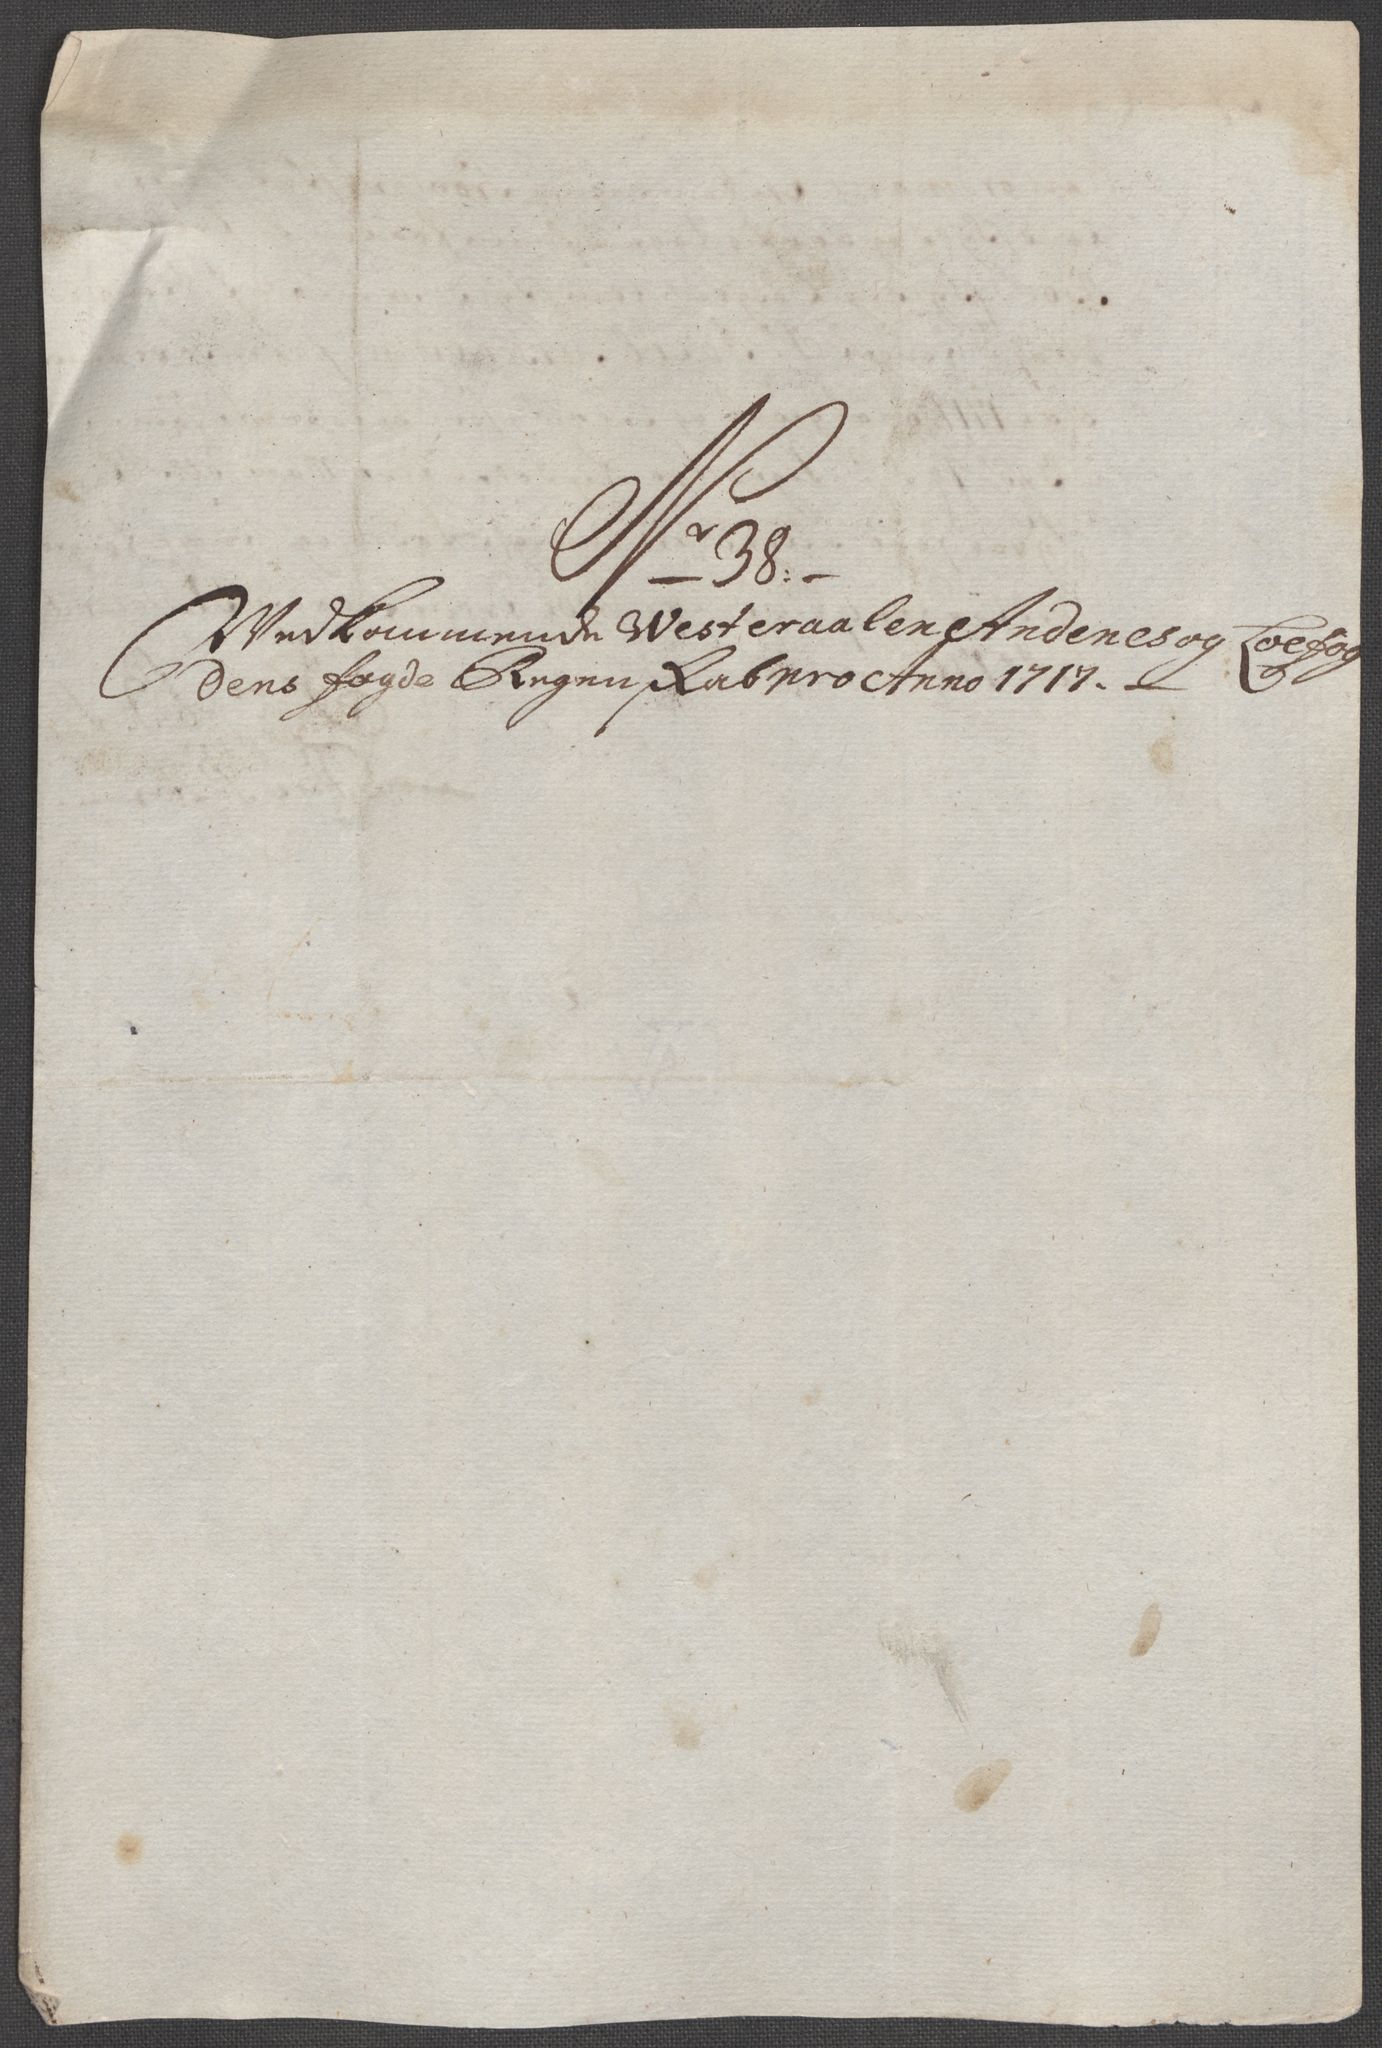 Nr 38:
Vedkommende Westeraalen Andenes og Loefog
dens fogde Regenskab pro Anno 1717.